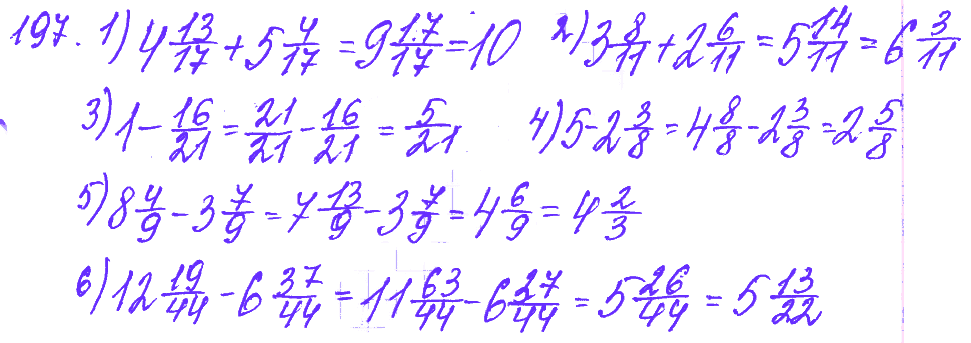 197. 1) 4 13/17 + 5 4/17 = 9 17/17 = 10 2) 3 8/11 + 2 6/11 = 5 14/11 = 6 3/11
3) 1 - 16/21 = 21/21 - 16/21 = 5/21 4) 5 - 2 3/8 = 4 8/8 - 2 3/8 = 2 5/8
5) 8 4/9 - 3 7/9 = 7 13/9 - 3 7/9 = 4 6/9 = 4 2/3
6) 12 19/44 - 6 37/44 = 11 63/44 - 6 27/44 = 5 26/44 = 5 13/22